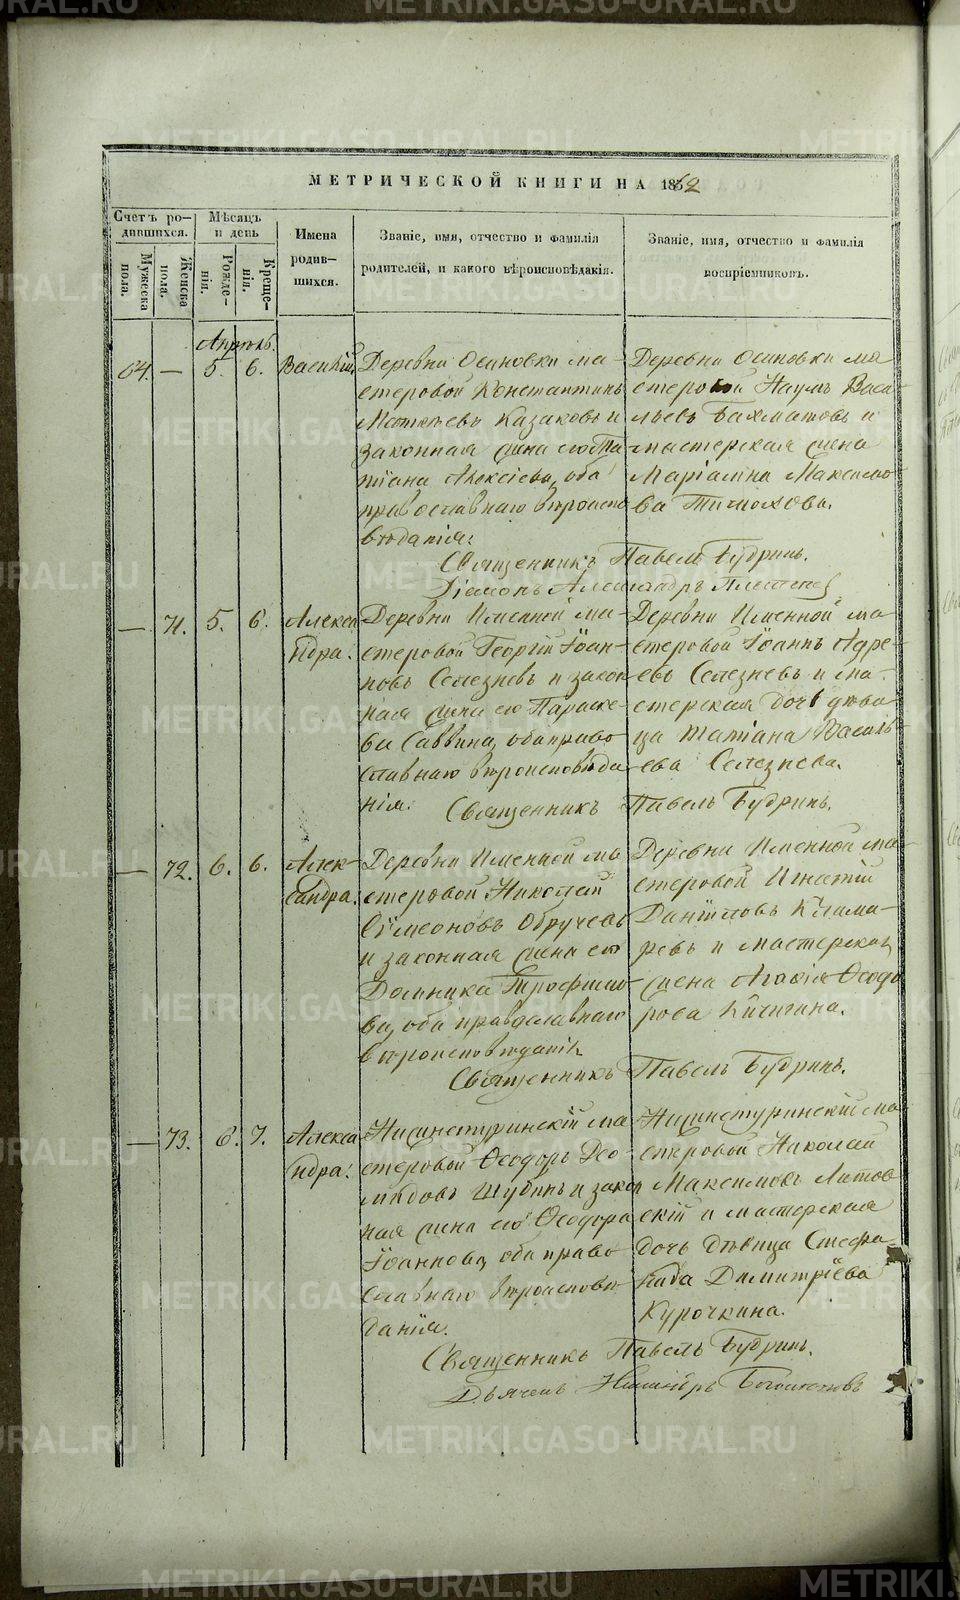 МЕТРИЧЕСКОЙ КНИГИ НА 1862
Счетъ ро-
дившихся.
Мужеска
пола.
Женска
пола.
Мѣсяцъ
и день
Рожде-
нія.
Креще-
нія.
Имена
родив-
шихся.
Званіе, имя, отчество и фамилія
родителей, и какого вѣроисповѣдакія.
Званіе, имя, отчество и фамилія
воспріемниковъ.
Апрѣль.
64. — 5. 6. Василій
Деревни Осиновки ма-
стеровой Константинъ
Матѳѣевъ Казаковъ и
законная жена его Та
тіана Алексіева, оба
православнаго вѣроиспо
вѣданія:
Деревни Осиновки ма
стеровой Наумъ Васи-
льевъ Бахматовъ и
мастерская жена
Маріамна Максимо
ва Тимохова.
Священникъ Павелъ Будринъ.
Діаконъ Александръ
— 71. 5. 6. Алекса
ндра:
Деревни Именной ма-
стеровой Георгій Іоан-
новъ Селезневъ и закон
ная жена его Параске-
ва Саввина, оба право
славнаго вѣроисповѣда
нія:
Деревни Именной ма-
стеровой Іоаннъ Адре-
евъ Селезневъ и ма-
стерская дочь дѣви-
ца Татіана Василь-
ева Селезнева.
Священникъ Павелъ Будринъ.
— 72. 6. 6. Алек-
сандра:
Деревни Именной ма
стеровой Николай
Сѵмеоновъ Обручевъ
и законная жена его
Домника Трофимо-
ва, оба православнаго
вѣроисповѣданія
Деревни Именной ма-
стеровой Игнатій
Даніиловъ Клима-
ревъ и мастерская
жена Агафія Ѳеодо
рова Кичигина.
Священникъ Павелъ Будринъ.
— 73. 6. 7. Алекса
ндра:
Нижнетуринскій ма
стеровой Ѳеодоръ Део-
мидовъ Шубинъ и закон
ная жена его Ѳеодора
Іоаннова, оба право
славнаго вѣроисповѣ
данія.
Нижнетуринскій ма
стеровой Николай
Максимовъ Литов
скій и мастерская
дочь дѣвица Стефа-
нида Димитріева
Курочкина.
Священникъ Павелъ Будринъ.
Дьячекъ
METRIKI.GASO-URAL.RU